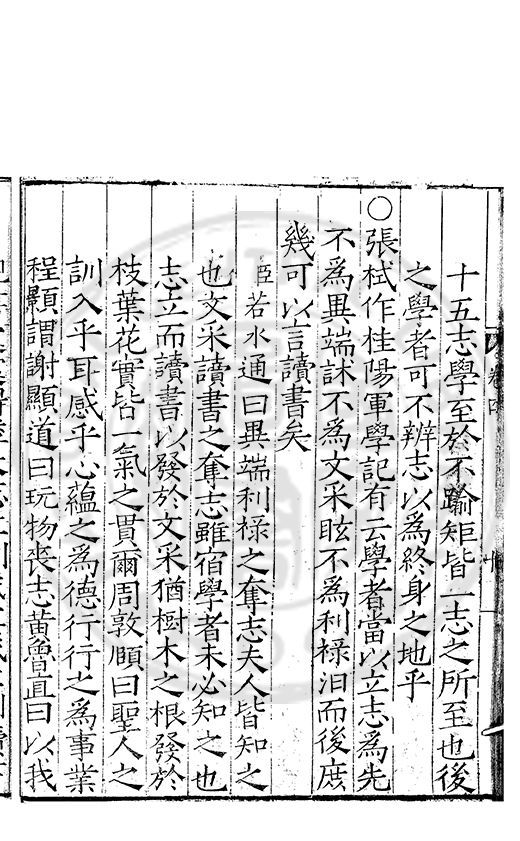 十五志學至於不踰矩皆一志之所至也後
之學者可不辨志以為終身之地乎
○張栻作桂陽軍學記有云學者當以立志為先
不為異端訹不為文采眩不為利祿汨而後庶
幾可以言讀書矣
臣若水通曰異端利祿之奪志夫人皆知之
也文采讀書之奪志雖宿學者未必知之也
志立而讀書以發於文采猶樹木之根發於
枝葉花實皆一氣之貫爾周敦頤曰聖人之
訓入乎耳感乎心蘊之為德行行之為事業
程顥謂謝顯道曰玩物喪志黃魯直曰以我
卷四